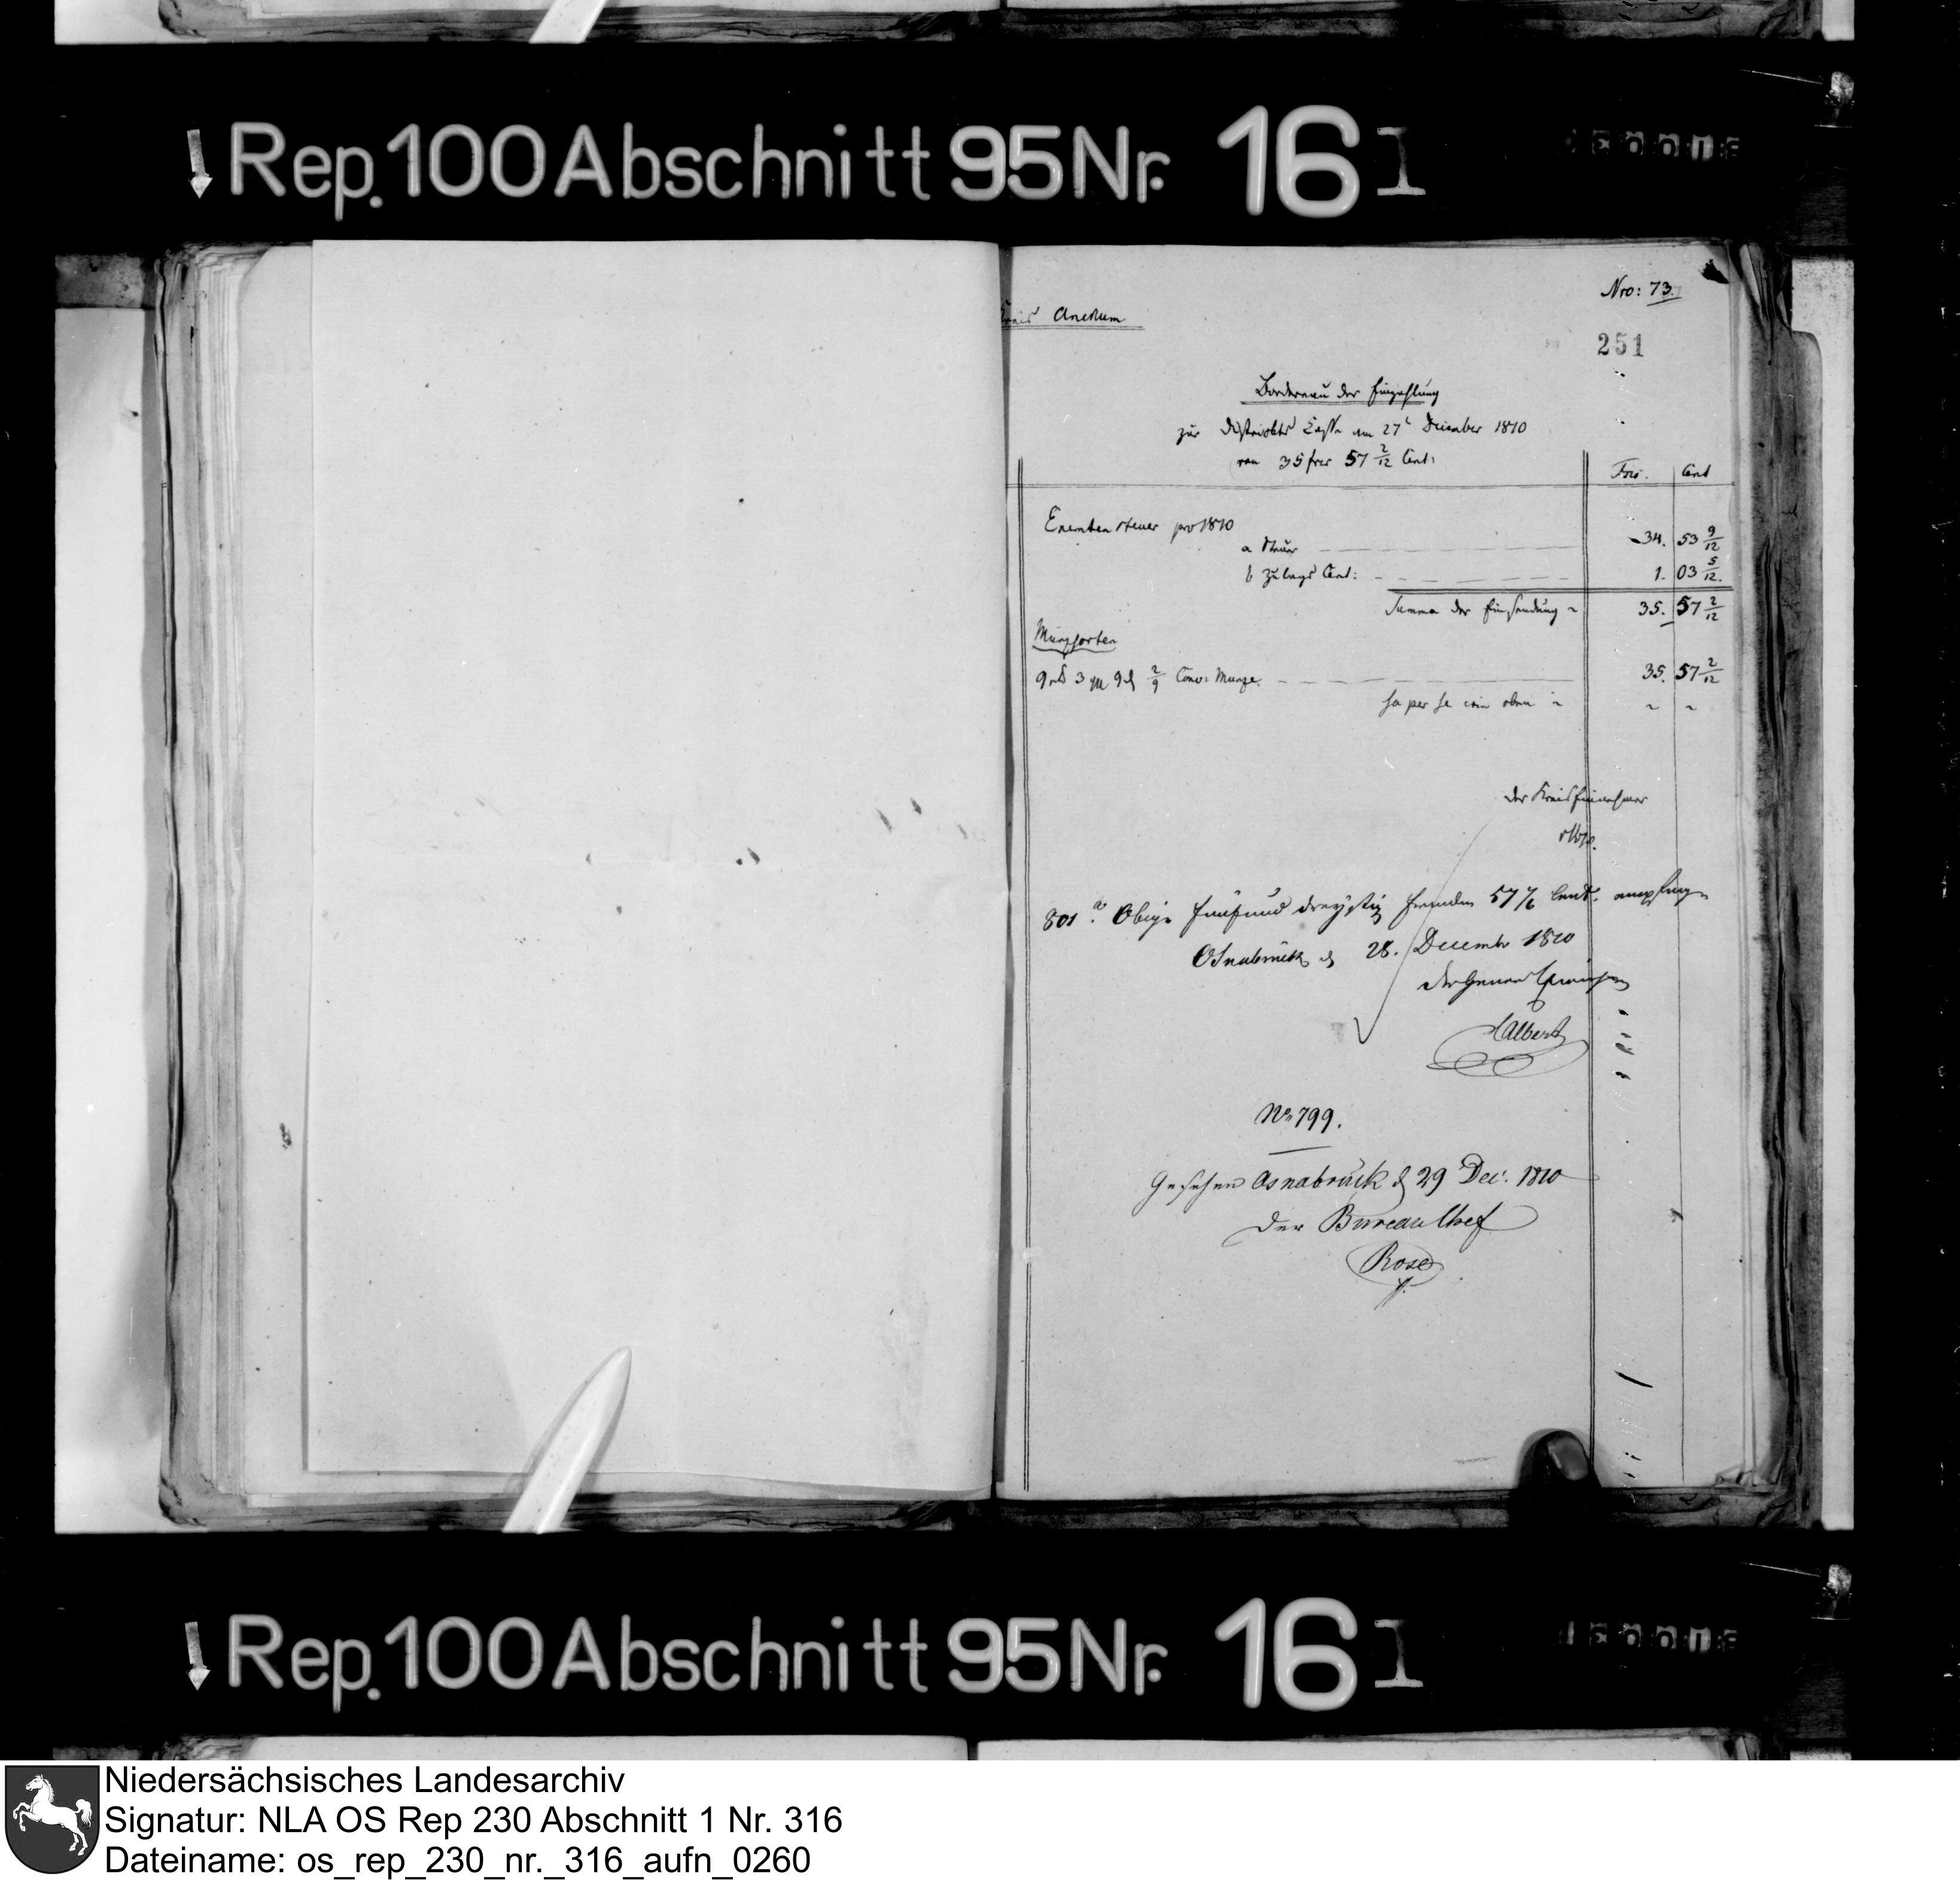 Rep. 100 Abschnitt 95 Nr. 16 I
Nro: 73.
Kreis Anckum
251
Bordereau der Einzahlung
zur Districkts Casse am 27t December 1810
von 35 frcs 57 2/12 Cent:
Frcs. Cent
Exemten steuer pro 1810
a Steuer 34. 53 9/12
b Zulags Cent: 1. 03 5/12.
Summa der Einsendung 35. 57 2/12
Münzsorten
3 9 2/9 Conv: Munze. 35. 57 2/12
Sa per se wie oben
der Kreiseinnehmer
801 Obige fünfund dreyßig Franken 57 1/6 Cent. empfangen
Osnabrück d 28. Decembr 1810
der General Einnehmer
Albert
No 799.
Gesehen Osnabrück d 29 Dec. 1810
Der Bureau Chef
Rose
Rep. 100 Abschnitt 95 Nr. 16 I
Niedersächsisches Landesarchiv
Signatur: NLA OS Rep 230 Abschnitt 1 Nr. 316
Dateiname: os_rep_230_nr._316_aufn_0260